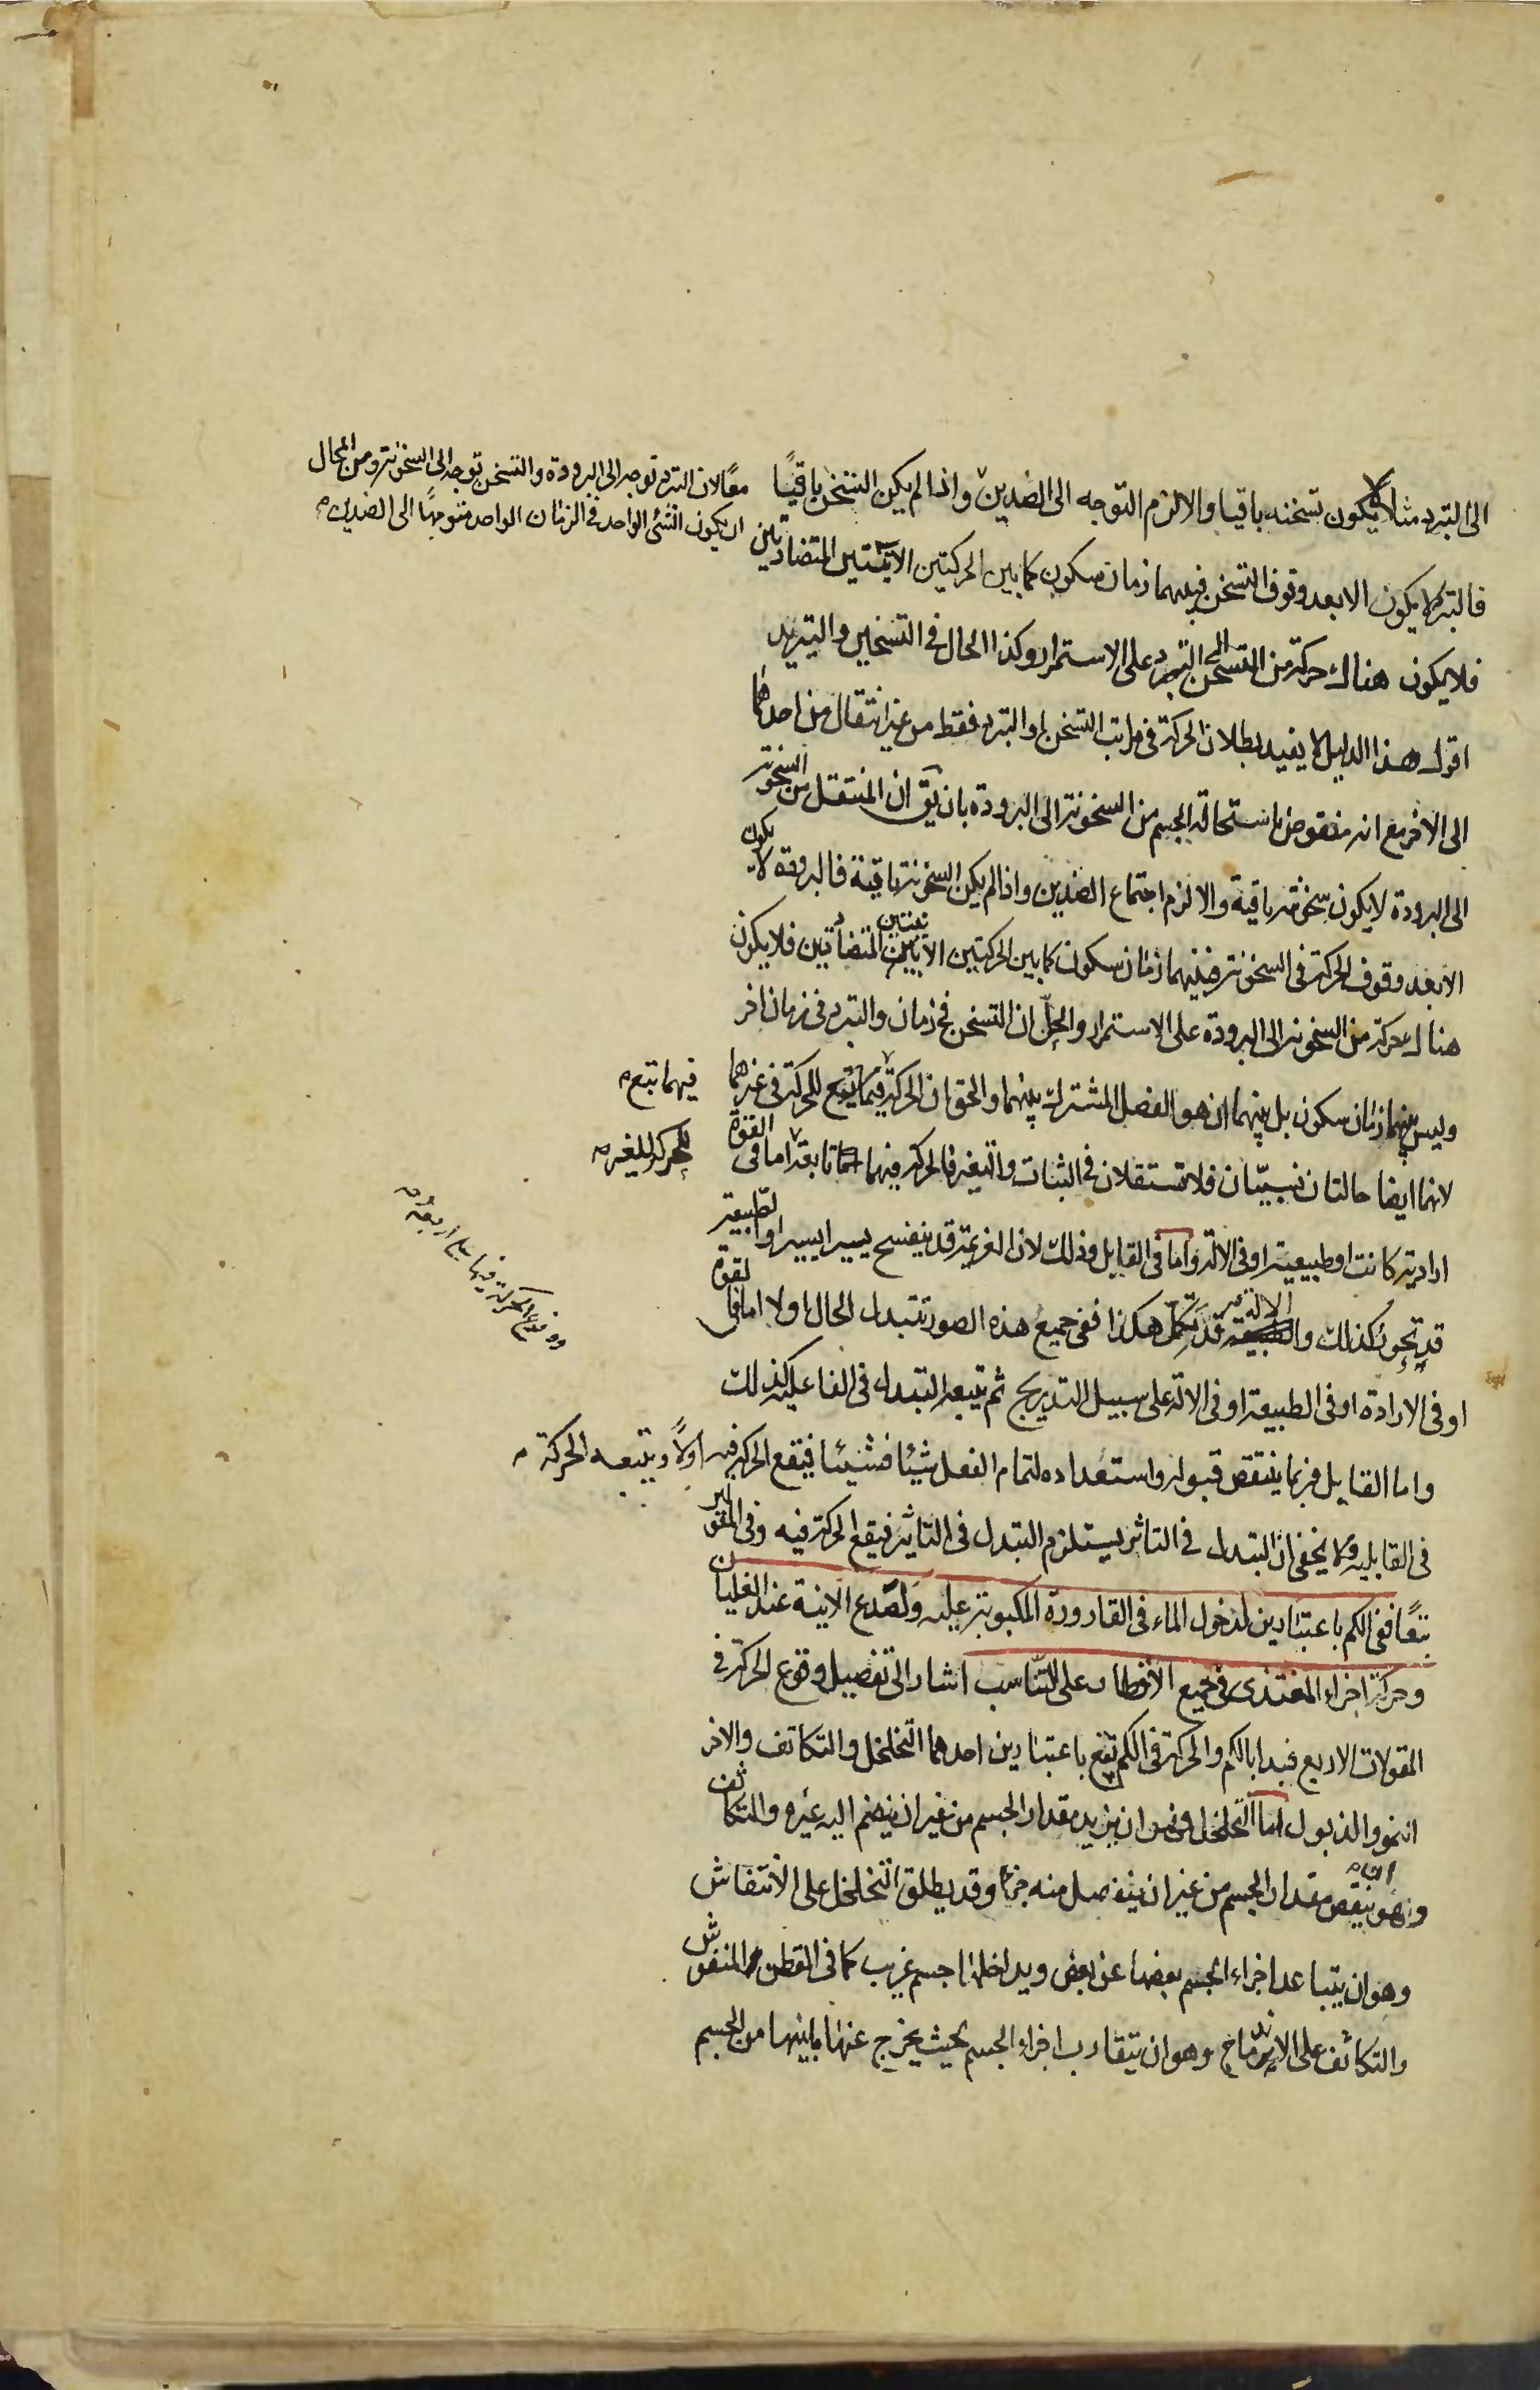 الى التبرد مثلا لا يكون تسخنه باقيا والا لزم التوجه الى الضدين واذا لم يكن التسخن باقيًا
معًا لان التبرد توجه الى البرودة والتسخن توجه الى السخونة ومن المحال
ان يكون الشئ الواحد فى الزمان الواحد متوجهًا الى الضدين
فالتبرد لا يكون الا بعد وقوف التسخن فبينهما زمان سكون كما بين الحركتين الاينيتين المتضادتين
فلا يكون هناك حركة من التسخن الى التبرد على الاستمرار وكذا الحال فى التسخين والتبريد
اقول هذا الدليل لا يفيد بطلان الحركة فى مراتب التسخن او التبرد فقط من غير انتقال من احدهما
الى الاخر مع انه منقوض باستحالة الجسم من السخونة الى البرودة بان يق ان المنتقل من السخونة
الى البرودة لا يكون سخونته باقية والا لزم اجتماع الضدين واذا لم يكن السخونة باقية فالبرودة لا يكون
الا بعد وقوف الحركة فى السخونة فبينهما زمان سكون كما بين الحركتين الاينيتين المتضادتين فلا يكون
هناك حركة من السخونة الى البرودة على الاستمرار والحلّ ان التسخن فى زمان والتبرد فى زمان اخر
وليس بينهما زمان سكون بل بينهما ان هو الفصل المشترك بينهما والحق ان الحركة فيهما تتبع للحركة فى غيرهما
فيهما تبع
لانهما ايضا حالتان نسبيّتان فلا تستقلان فى الثبات والتغير فالحركة فيهما تابعة اما فى القوة
للحركة لغيره
ارادية كانت او طبيعية او فى الالة واما فى القابل وذلك لان العزيمة قد ينفسخ يسيرا يسيرا والطبيعة
قد تخور كذلك والالة قد تكلّ هكذا ففى جميع هذه الصور تتبدل الحال اولا اما فى القوة
او فى الارادة او فى الطبيعة او فى الالة على سبيل التدريج ثم تتبعه التبدل فى الفاعلية كذلك
واما القابل فربما ينتقص قبوله واستعداده لتمام الفعل شيئا فشيئا فيقع الحركة فيه اولاً ويتبعه الحركة
فى القابلية وكما يخفى ان التبدل فى التاثر يستلزم التبدل فى التاثير فيقع الحركة فيه وفى البواقى
تبعًا ففى الكم باعتبارين لدخول الماء فى القارورة المكبوبة عليه ولصدع الانية عند الغليان
وحركة اجزاء المغتذى فى جميع الاقطار على التناسب اشار الى تفصيل وقوع الحركة فى
المقولات الاربع فبدا بالكم والحركة فى الكم تقع باعتبارين احدهما التخلخل والتكاثف والاخر
النمو والذبول اما التخلخل فهو ان يزيد مقدار الجسم من غير ان ينضم اليه غيره والتكاثف
وهو ان ينقص مقدار الجسم من غير ان ينفصل منه جزء وقد يطلق التخلخل على الانتفاش
وهو ان يتباعد اجزاء الجسم بعضها عن بعض ويداخلها جسم غريب كما فى القطن المنفوش
والتكاثف على الاندماج وهو ان يتقارب اجزاء الجسم بحيث يخرج عنها ما بينها من الجسم